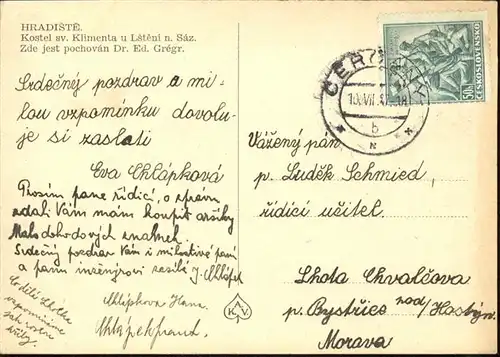 HRADIŠTĚ.
Kostel sv. Klimenta u Lštění n. Sáz.
Zde jest pochován Dr. Ed. Grégr.
Srdečný pozdrav a mi-
lou vzpomínku dovolu-
je si zaslati
Eva Chlápková
Prosím pane řídící, o zprávu
zdali Vám mám koupit aršíky
Malodohodových známek.
Srdečný pozdrav Vám i milostivé paní
a panu inženýrovi zasílá J. Chlápek
Chlápkova Hana
Chlápek
Co dělá
vzpomínáme
KAV
ČESKOSLOVENSKO
50h
ČERČ
b
Vážený pán
p. Luděk Schmied,
řídící učitel.
Lhota Chvalčova
p. Bystřice nad/Hostýn.
Morava